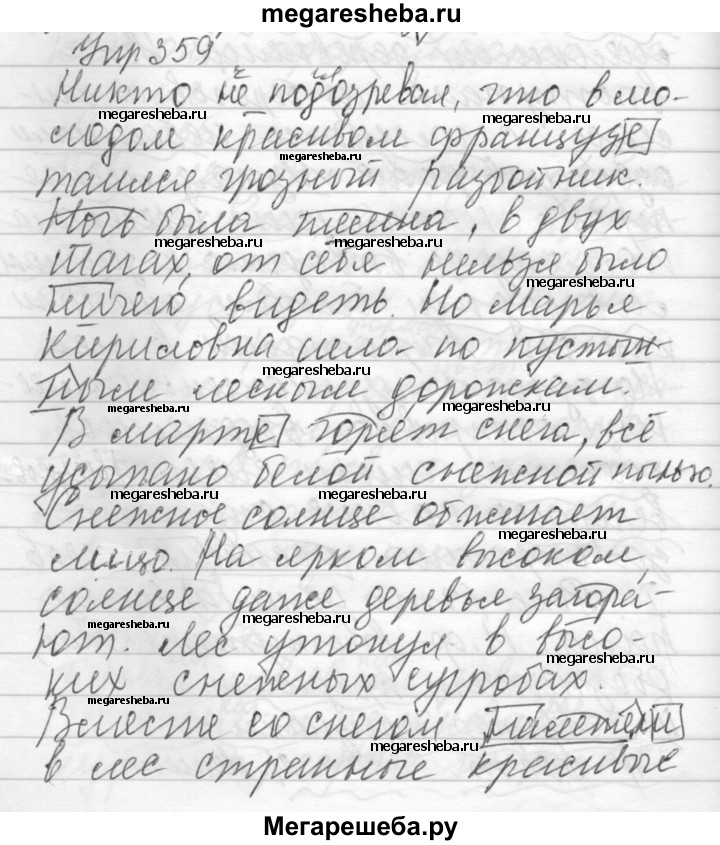 megaresheba.ru
Упр 359
Никто не подозревал, что в мо-
megaresheba.ru megaresheba.ru
лодом красивом французе
megaresheba.ru
таился грозный разбойник.
Ночь была темна, в двух
megaresheba.ru
шагах от себя нельзя было
megaresheba.ru
ничего видеть. Но Марья
Кириловна шла по пустын-
megaresheba.ru
ным лесным дорожкам.
megaresheba.ru megaresheba.ru
В марте горят снега, всё
усыпано белой снежной пылью.
megaresheba.ru megaresheba.ru
Снежное солнце обжигает
megaresheba.ru
лицо. На ярком высоком
солнце даже деревья загора-
megaresheba.ru
ют. Лес утонул в высо-
megaresheba.ru
ких снежных сугробах.
megaresheba.ru
Вместе со снегом налетели
megaresheba.ru
в лес странные красивые
Мегарешеба.ру